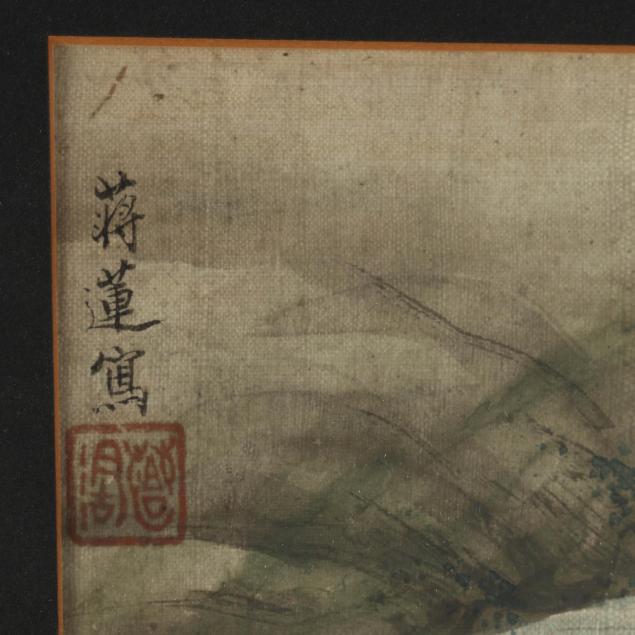 蔣蓮寫